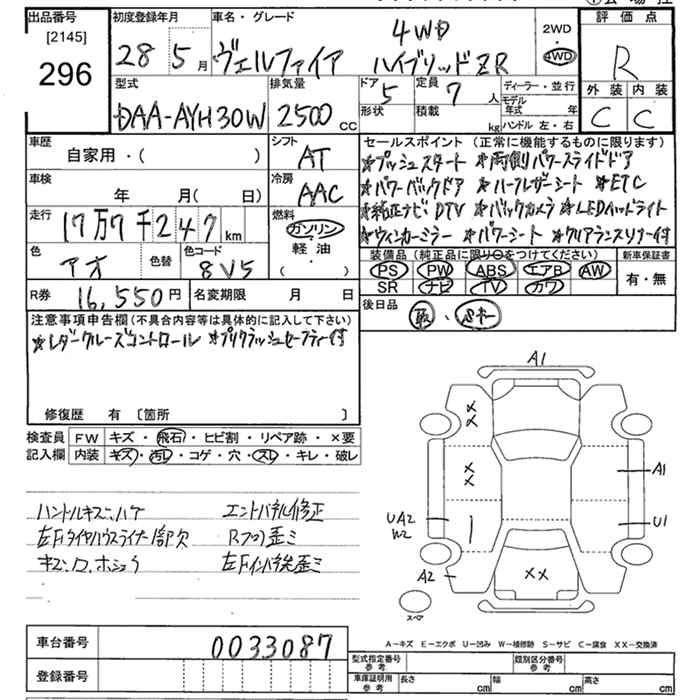 出品番号 初度登録年月 車名・グレード 評価点
[2145]
296
28 5月 ヴェルファイア 4WD ハイブリッドZR
2WD
・
4WD
R
外装 内装
C C
型式 排気量 ドア 定員 ディーラー・並行
DAA-AYH30W 2500cc 5 7人
形状 積載 kg
モデル年式 年
ハンドル 左・右
車歴 シフト
自家用・( ) AT
車検 冷房
年 月(日) AAC
走行 燃料
17万7千247km ガソリン・軽油
( ・ )
色 色替 色コード
アオ 8V5
R券 16,550円 名変期限 月 日
セールスポイント (正常に機能するものに限ります)
*プッシュスタート *両側パワースライドドア
*パワーバックドア *ハーフレザーシート *ETC
*純正ナビ DTV *バックカメラ *LEDヘッドライト
*ウィンカーミラー *パワーシート *クリアランスソナー付
装備品 (純正品に限り○をつけてください) 新車保証書
PS PW ABS エアB AW 有・無
SR ナビ TV カワ
後日品
取・
注意事項申告欄(不具合内容等は具体的に記入して下さい)
*レダークルーズコントロール *プリクラッシュセーフティ付
修復歴 有 〔箇所 〕
検査員 FW キズ・飛石・ヒビ割・リペア跡・×要
記入欄 内装 キズ・汚レ・コゲ・穴・スレ・キレ・破レ
ハンドルキズ、ハゲ エンドパネル修正
左Fタイヤハウスライナー1部欠 Rフロア歪ミ
キズ、ハゲ、ホシュウ 左Fインパネ鉄歪ミ
A1
××
××
A1
UA2
W2
U1
A2
××
スペア
A-キズ E-エクボ U-凹み W-補修跡 S-サビ C-腐食 XX-交換済
車台番号 0033087
登録番号
型式指定番号 参考 類別区分番号 参考
車庫証明用 参考 長さ cm 幅 cm 高さ cm